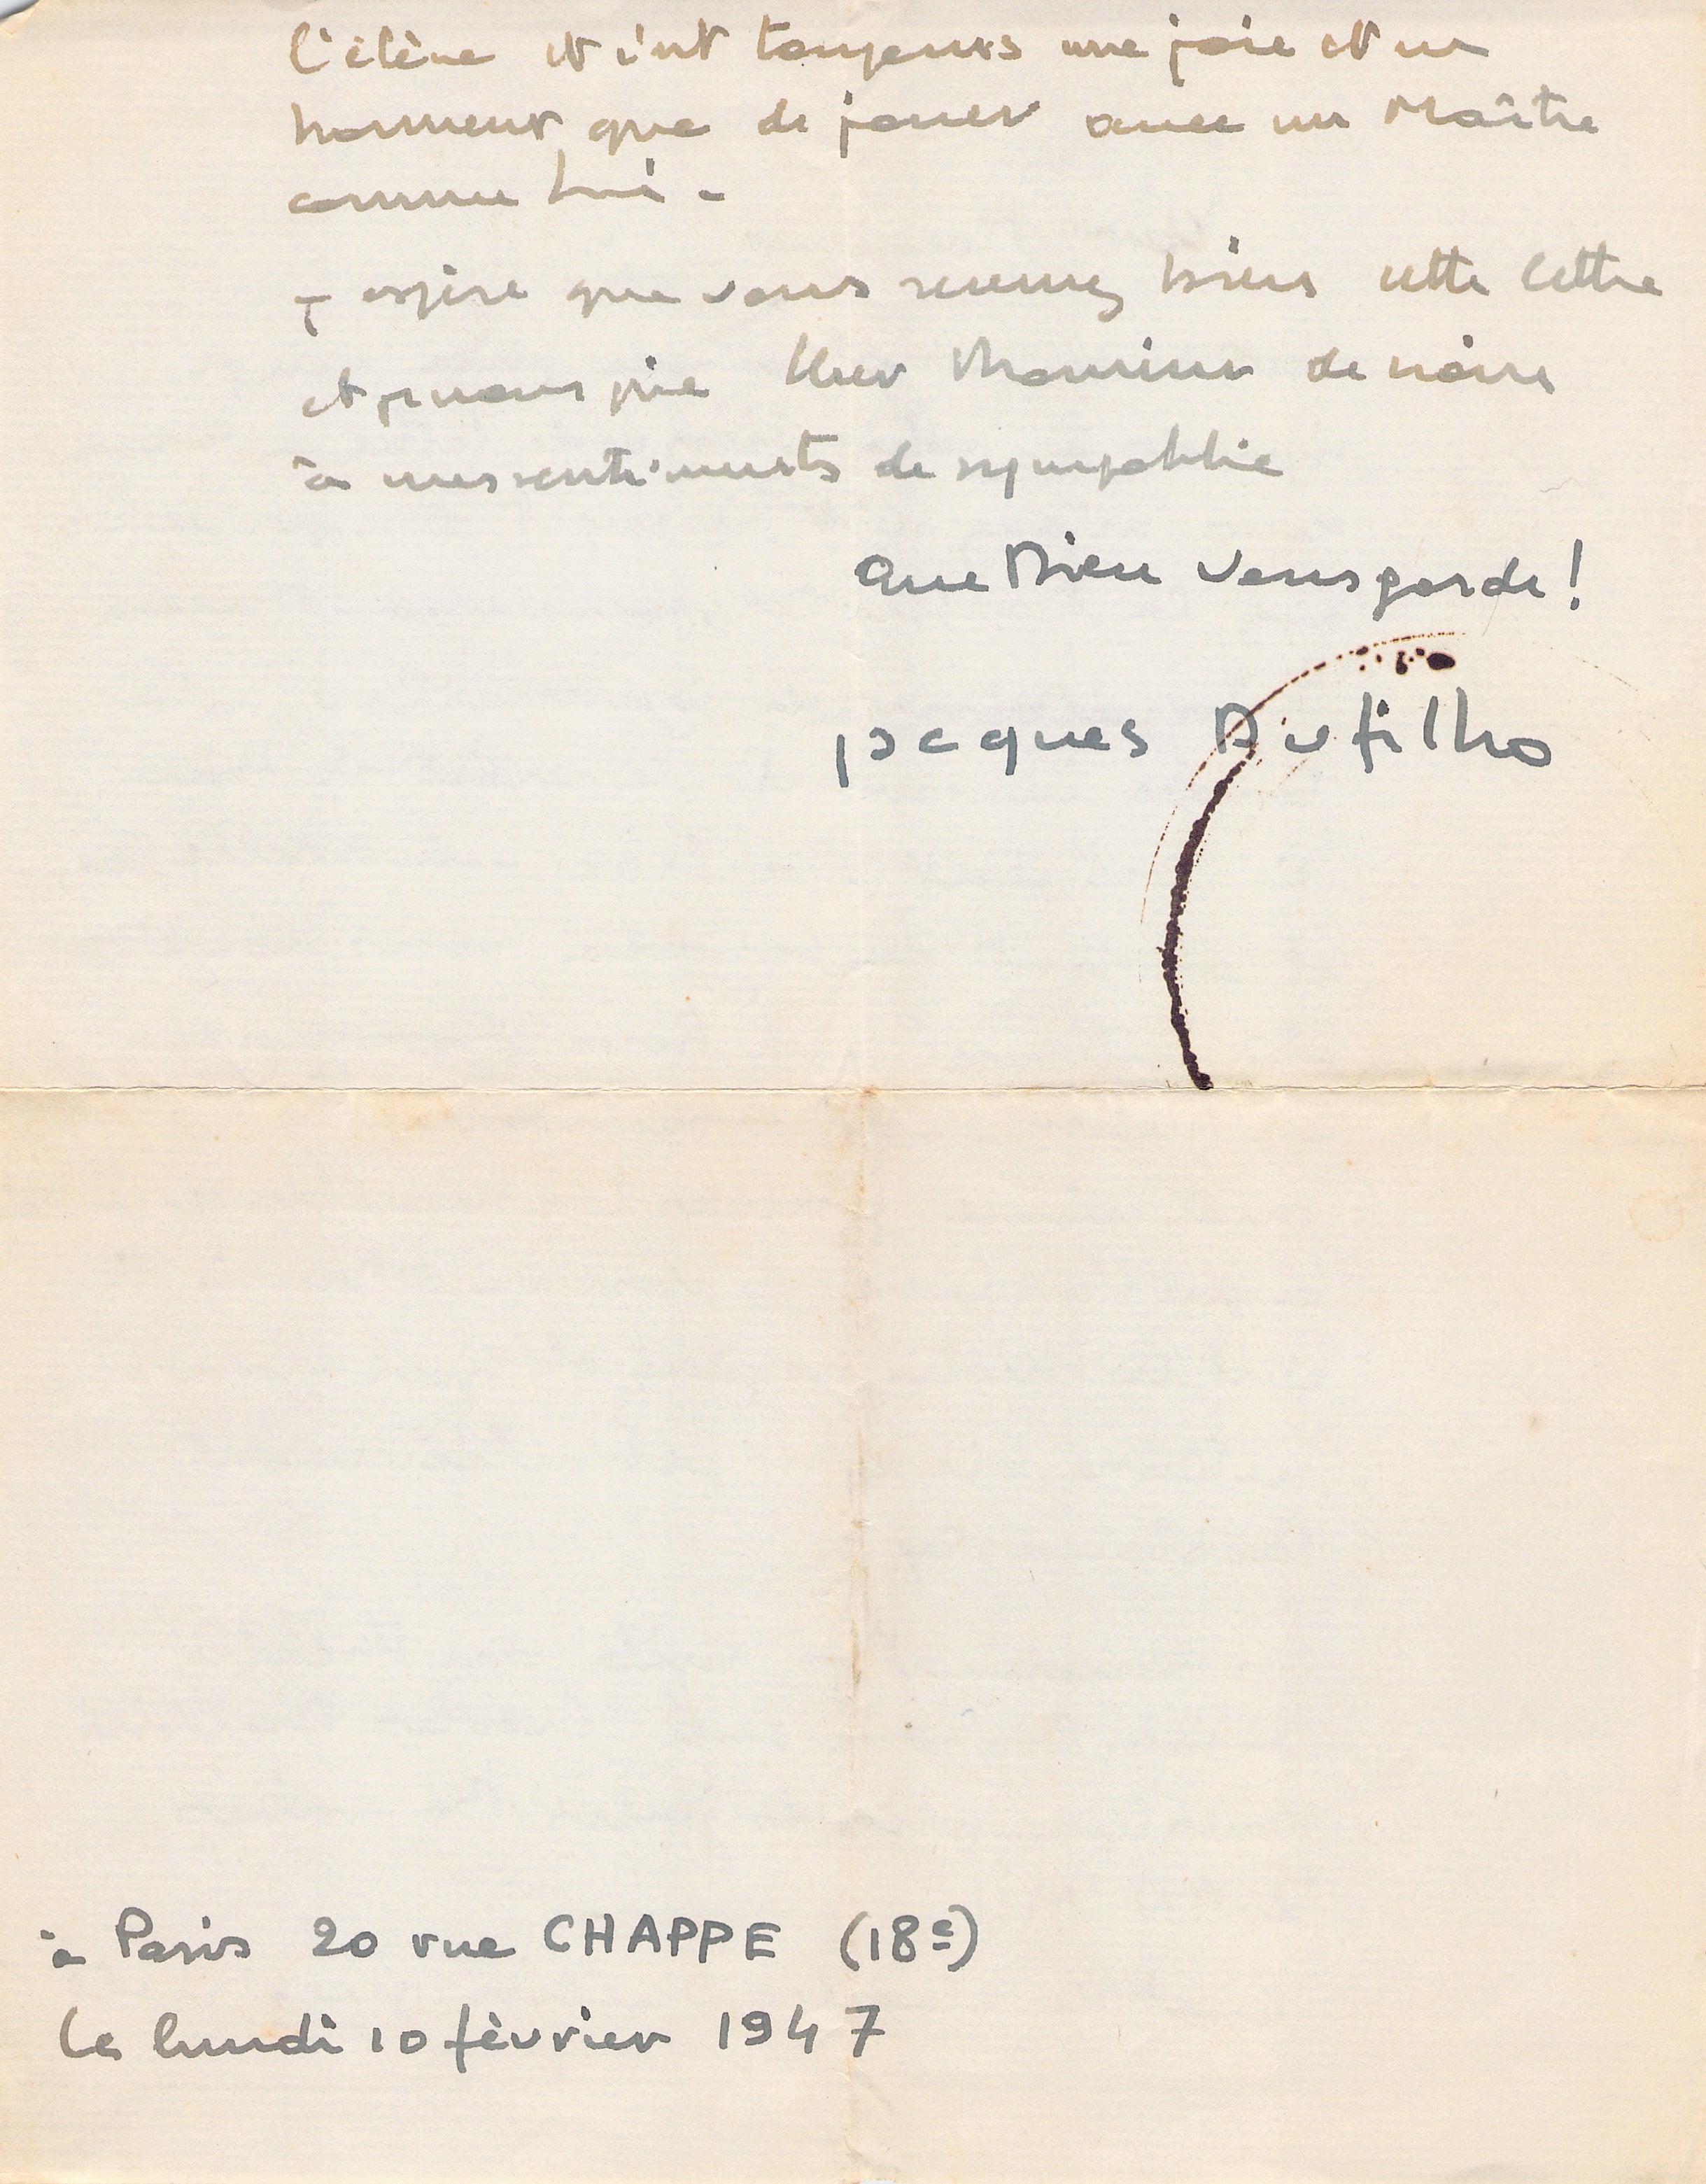 l'élève et c'est toujours une joie et un
honneur que de jouer avec un Maître
comme lui -
J'espère que vous recevrez bien cette lettre
et je vous prie Cher Monsieur de croire
à mes sentiments de sympathie
Que Dieu vous garde !
jacques Dufilho
à Paris 20 rue CHAPPE (18e)
le lundi 10 février 1947